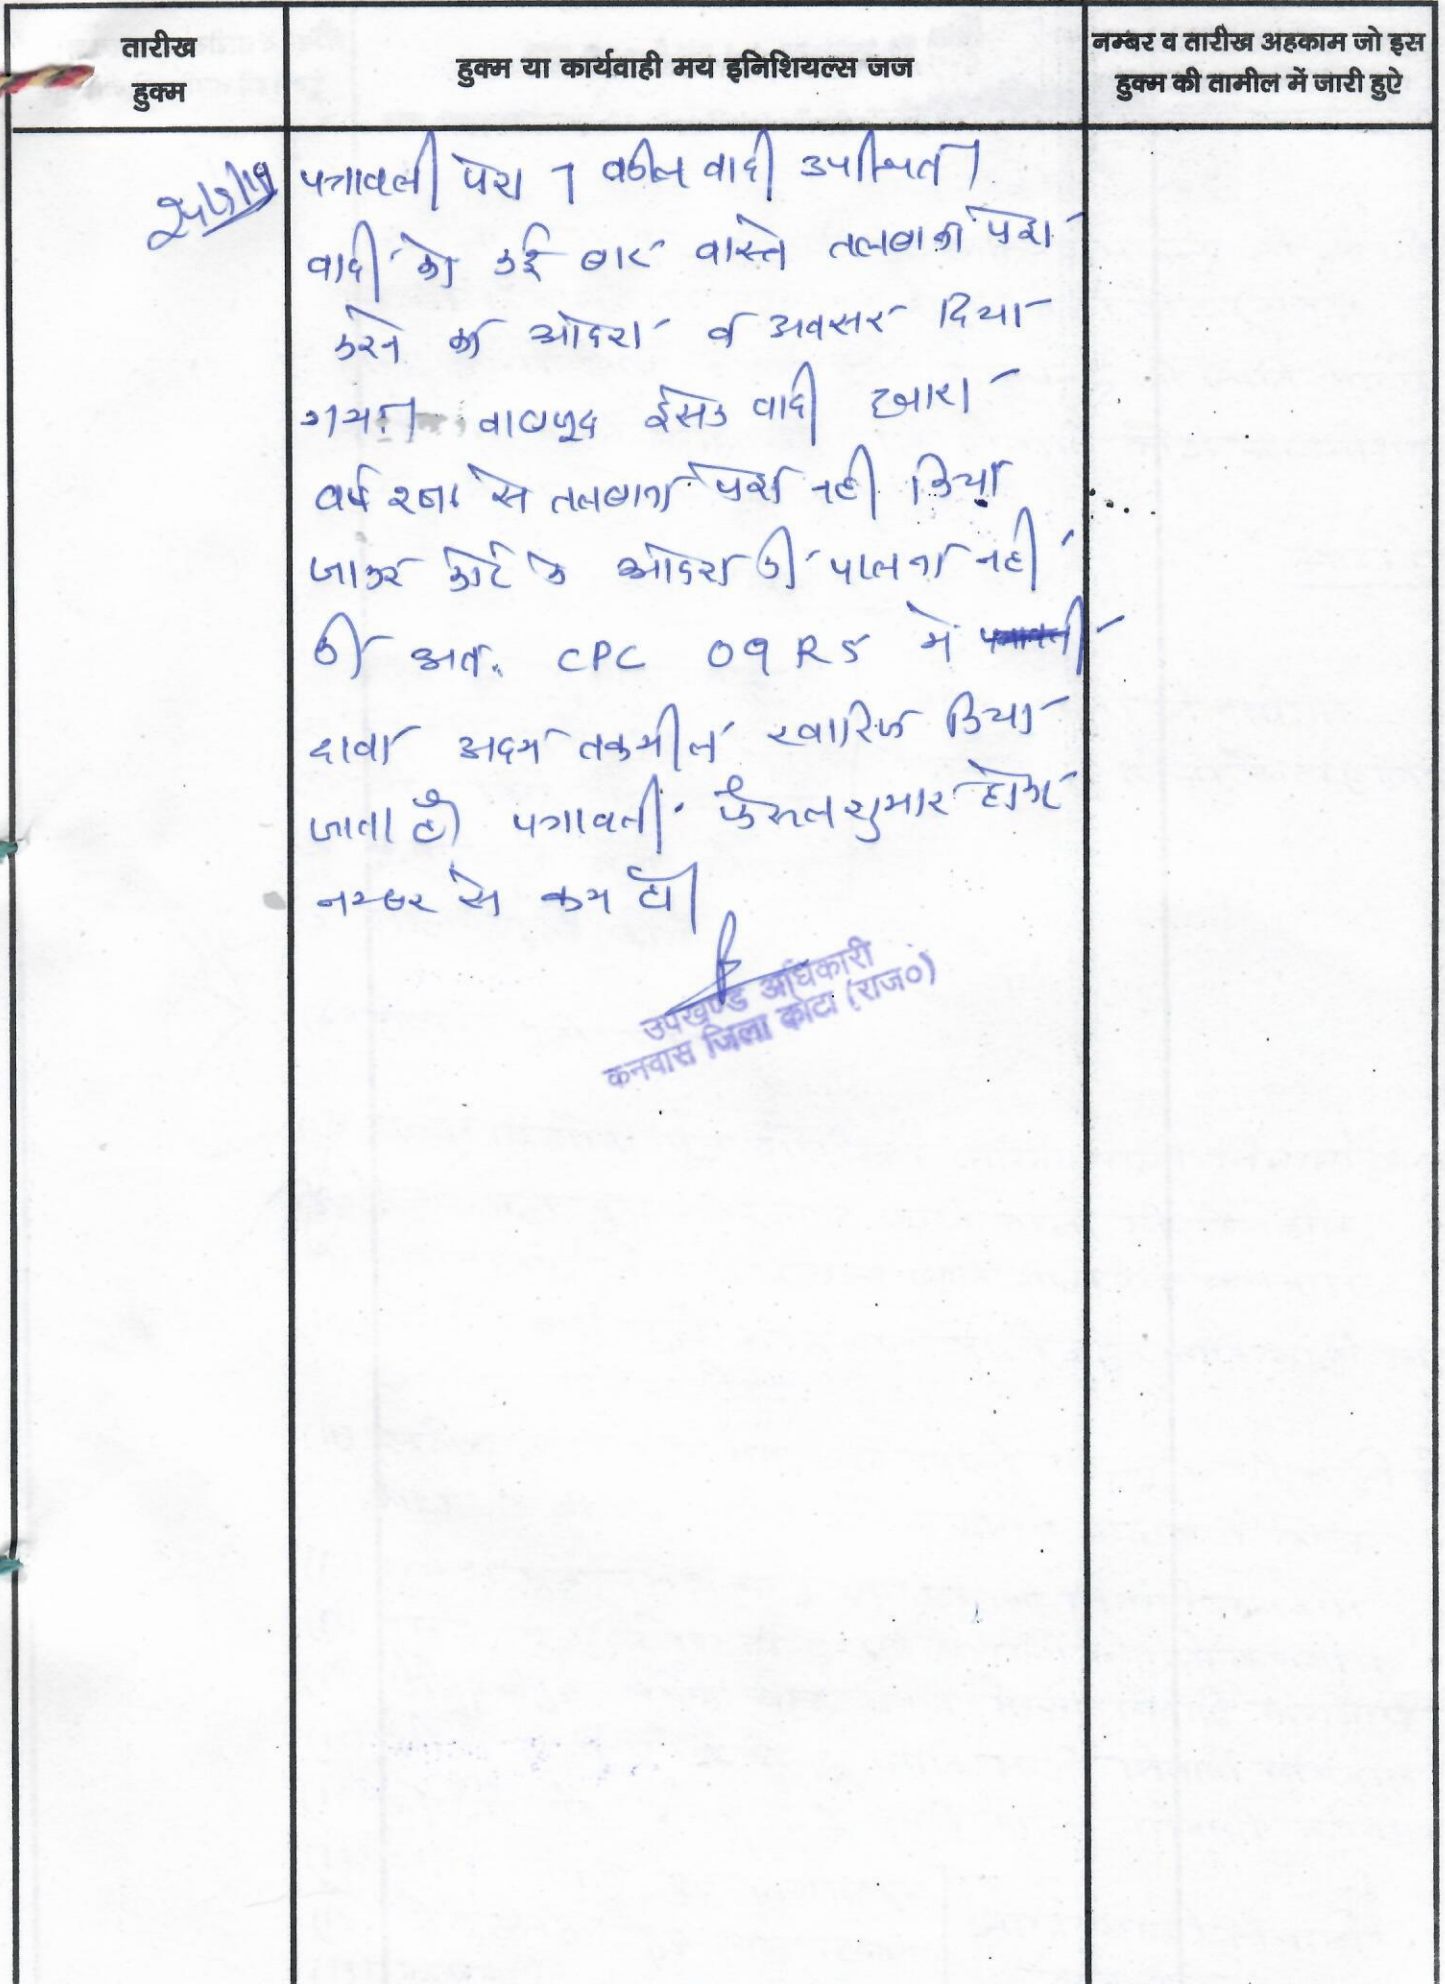 तारीख
हुक्म
हुक्म या कार्यवाही मय इनिशियल्स जज
नम्बर व तारीख अहकाम जो इस
हुक्म की तामील में जारी हुऐ
पत्रावली पेश । वकील वादी उपस्थित ।
वादी को कई बार वास्ते तलबाना पेश
करने का आदेश व अवसर दिया
गया। बावजूद इसके वादी द्वारा
वर्ष से तलबाना पेश नही किया
जाकर कोर्ट के आदेश की पालना नही
की अतः CPC 09 R5 में
दावा अदम तकमील खारिज किया
जाता है। पत्रावली फैसल शुमार होकर
नम्बर से कम हो।
उपखण्ड अधिकारी
कनवास जिला कोटा (राज०)